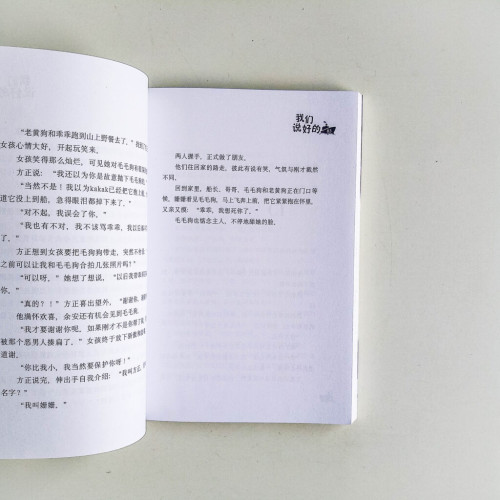 “老黄狗和乖乖跑到山上野餐去了。”
女孩心情大好，开起玩笑来。
女孩笑得那么灿烂，可见她对毛毛狗
方正说：“我还以为你是故意抛下毛毛
“当然不是！我以为kakak已经把它抱上
道它没上到船，急得眼泪都掉下来了。”
“对不起，我误会了你。”
“我也有不对，我不该骂乖乖，
方正想到女孩要把毛狗狗带走，突然不舍
之前可以让我和毛毛狗合拍几张照片吗？”
“可以呀。”她想了想说，“以后我
“真的？！”方正喜出望外，“谢谢你，
他满怀欢喜，余安还有机会见到毛毛
“我才要谢谢你呢，如果刚才不是你
被那个恶男人揍扁了。”女孩终于放下
道谢。
“你比我小，我当然要保护你呀！”
方正说完，伸出手自我介绍：“我叫方正，
名字？”
“我叫姗姗。”
我们
说好的
两人握手，正式做了朋友。
他们在回家的路走，彼此有说有笑，气氛与刚才截然
不同。
回到家里，船长、哥哥，毛毛狗和老黄狗正在门口等
候，姗姗看见毛毛狗，马上飞奔上前，把它紧紧抱在怀里，
又亲又摸：“乖乖，我想死你了。”
毛毛狗也情念主人，不停地舔她的脸。